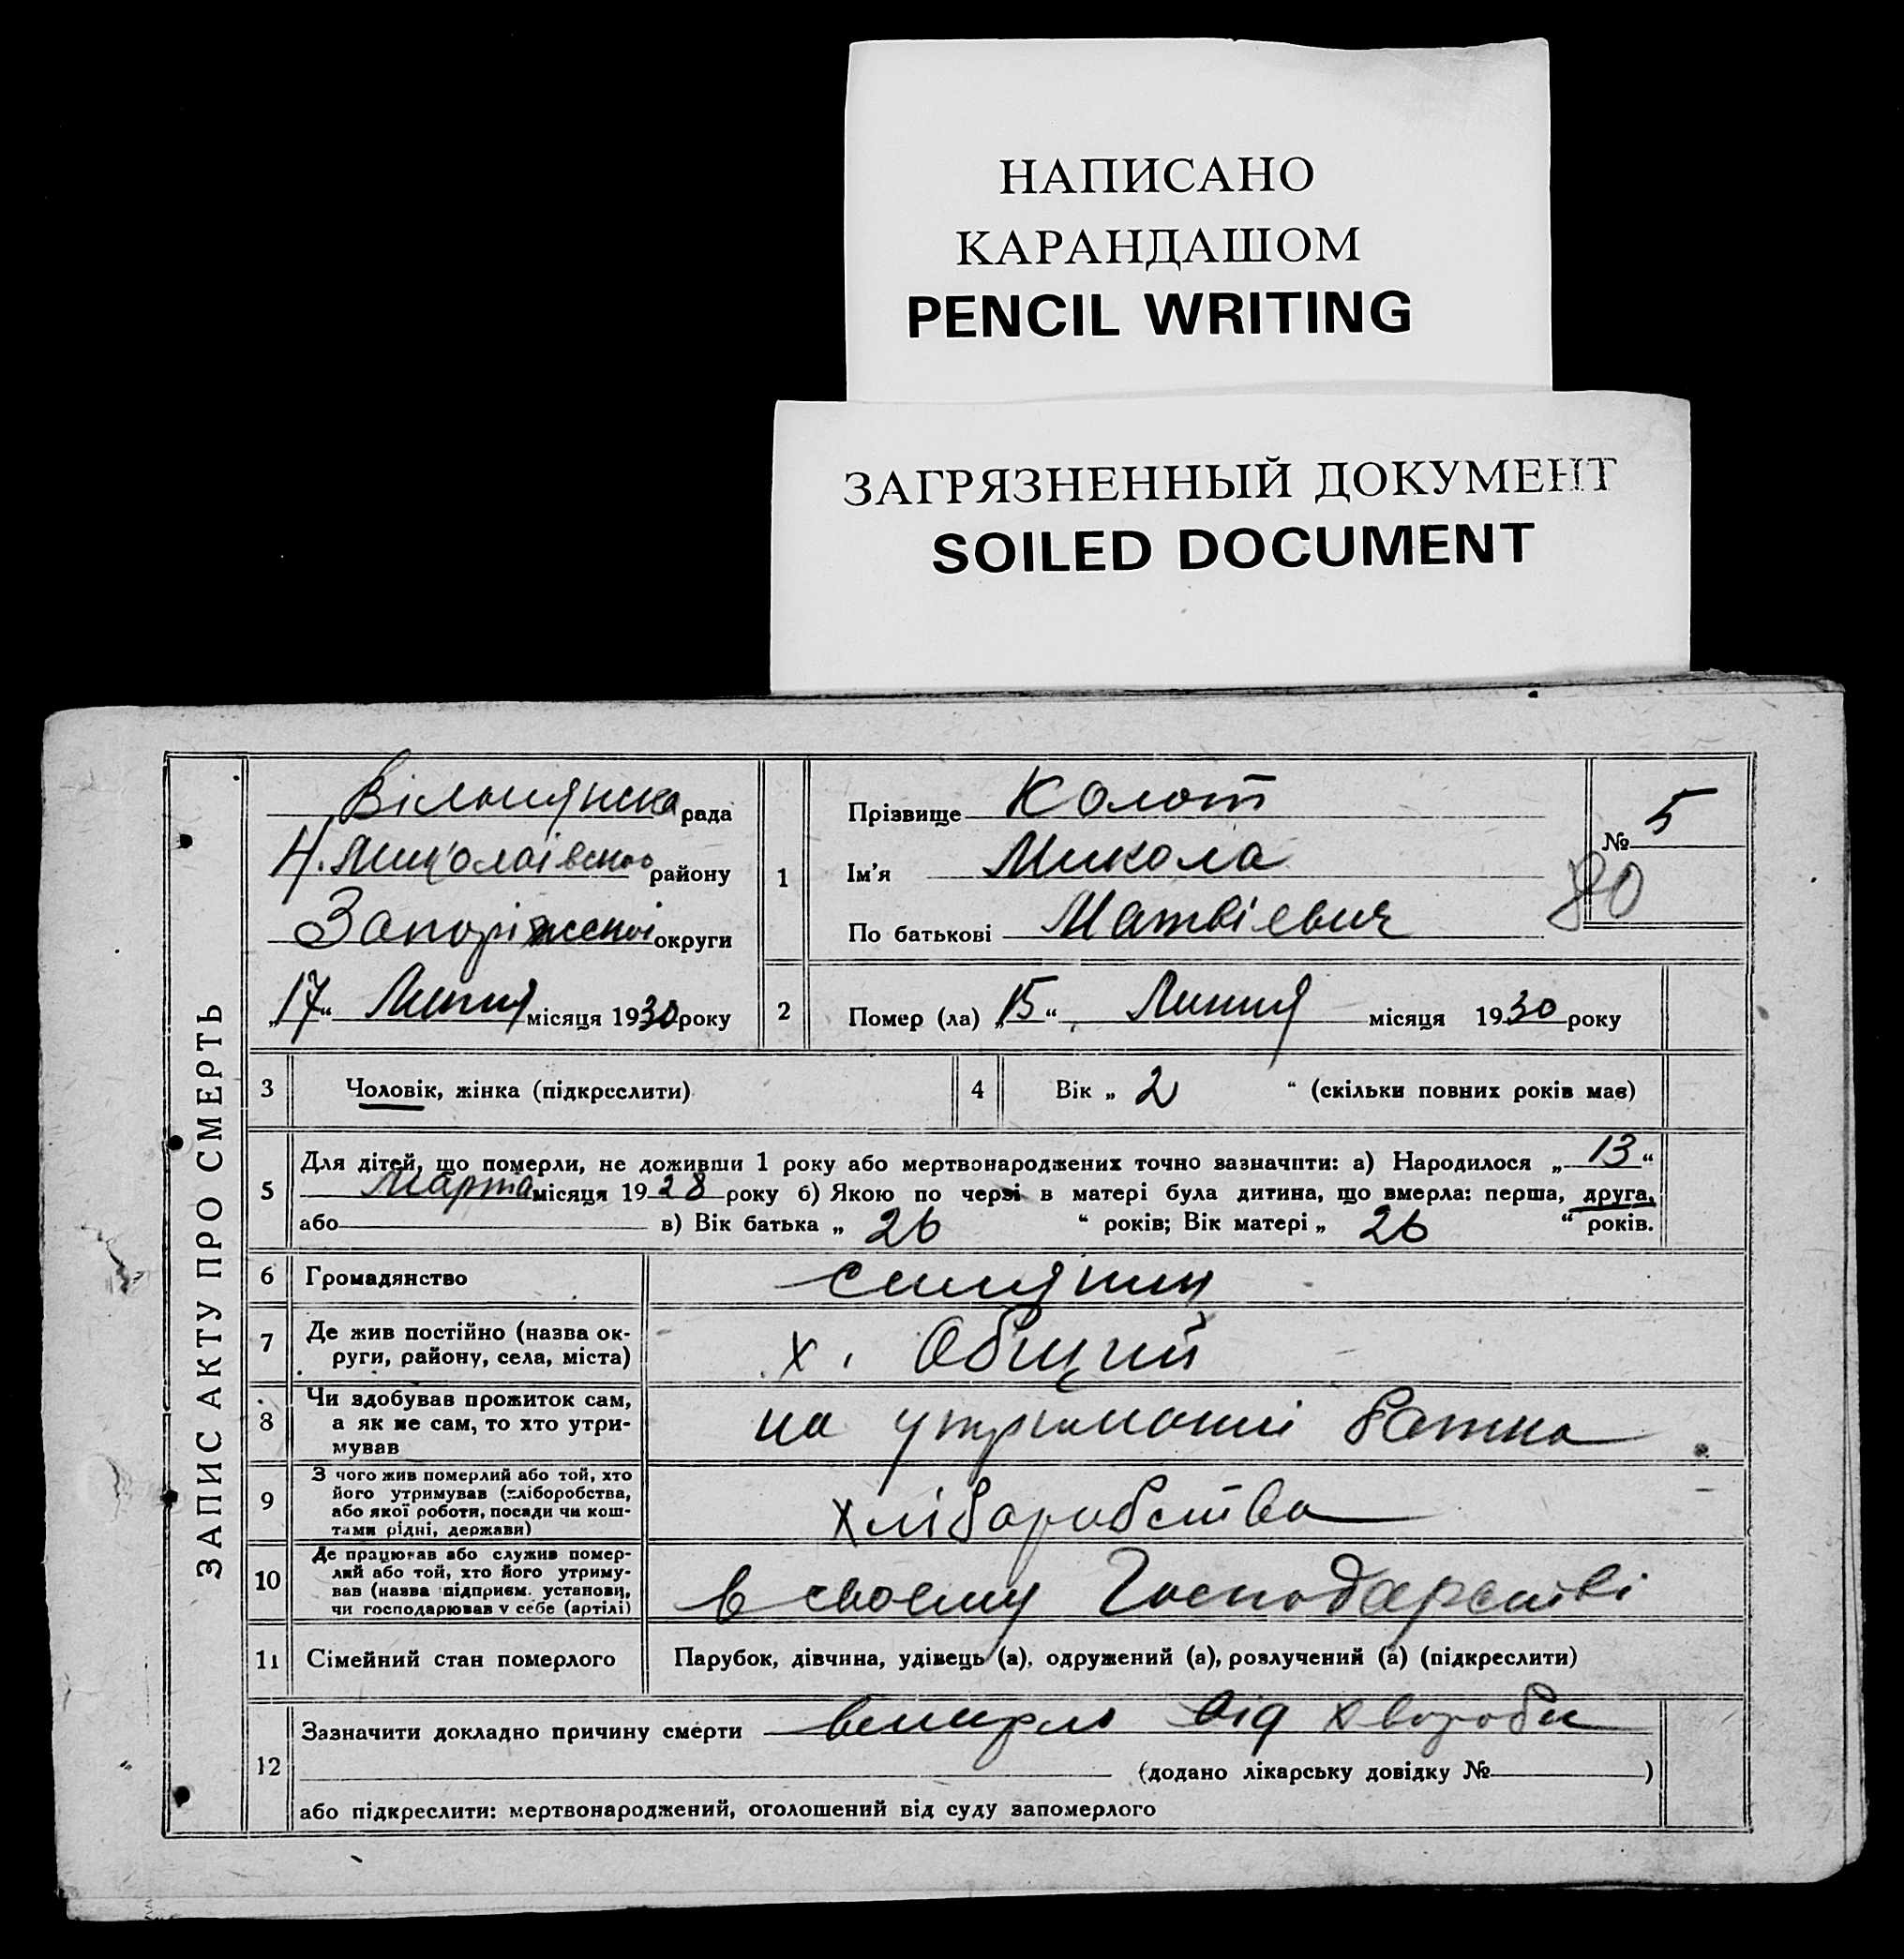 НАПИСАНО
КАРАНДАШОМ
PENCIL WRITING
ЗАГРЯЗНЕННЫЙ ДОКУМЕНТ
SOILED DOCUMENT
ЗАПИС АКТУ ПРО СМЕРТЬ
Вільнянска рада
Н. Миколаівского району
Запоріжскоі округи
„17“ Липня місяця 1930 року
1
Прізвище Колот
Ім'я Микола
По батькові Матвіевич
№ 5
80
2 Помер (ла) „15“ Липня місяця 1930 року
3 Чоловік, жінка (підкреслити)
4 Вік „ 2 “ (скільки повних років має)
5 Для дітей, що померли, не доживши 1 року або мертвонароджених точно зазначити: а) Народилося „13“
Марта місяця 1928 року б) Якою по черзі в матері була дитина, що вмерла: перша, друга,
або в) Вік батька „ 26 “ років; Вік матері „ 26 “ років.
6 Громадянство селянин
7 Де жив постійно (назва ок-
руги, району, села, міста)
х. Общий
8 Чи здобував прожиток сам,
а як не сам, то хто утри-
мував
на утриманні батька
9 З чого жив померлий або той, хто
його утримував (хліборобства,
або якої роботи, посади чи кош-
тами рідні, держави)
хліборобства
10 Де працював або служив помер-
лий або той, хто його утриму-
вав (назва підприєм. установи,
чи господарював у себе (артілі)
в своему Господарстві
11 Сімейний стан померлого Парубок, дівчина, удівець (а), одружений (а), розлучений (а) (підкреслити)
12 Зазначити докладно причину смерти вмерло від хвороби
(додано лікарську довідку № )
або підкреслити: мертвонароджений, оголошений від суду запомерлого